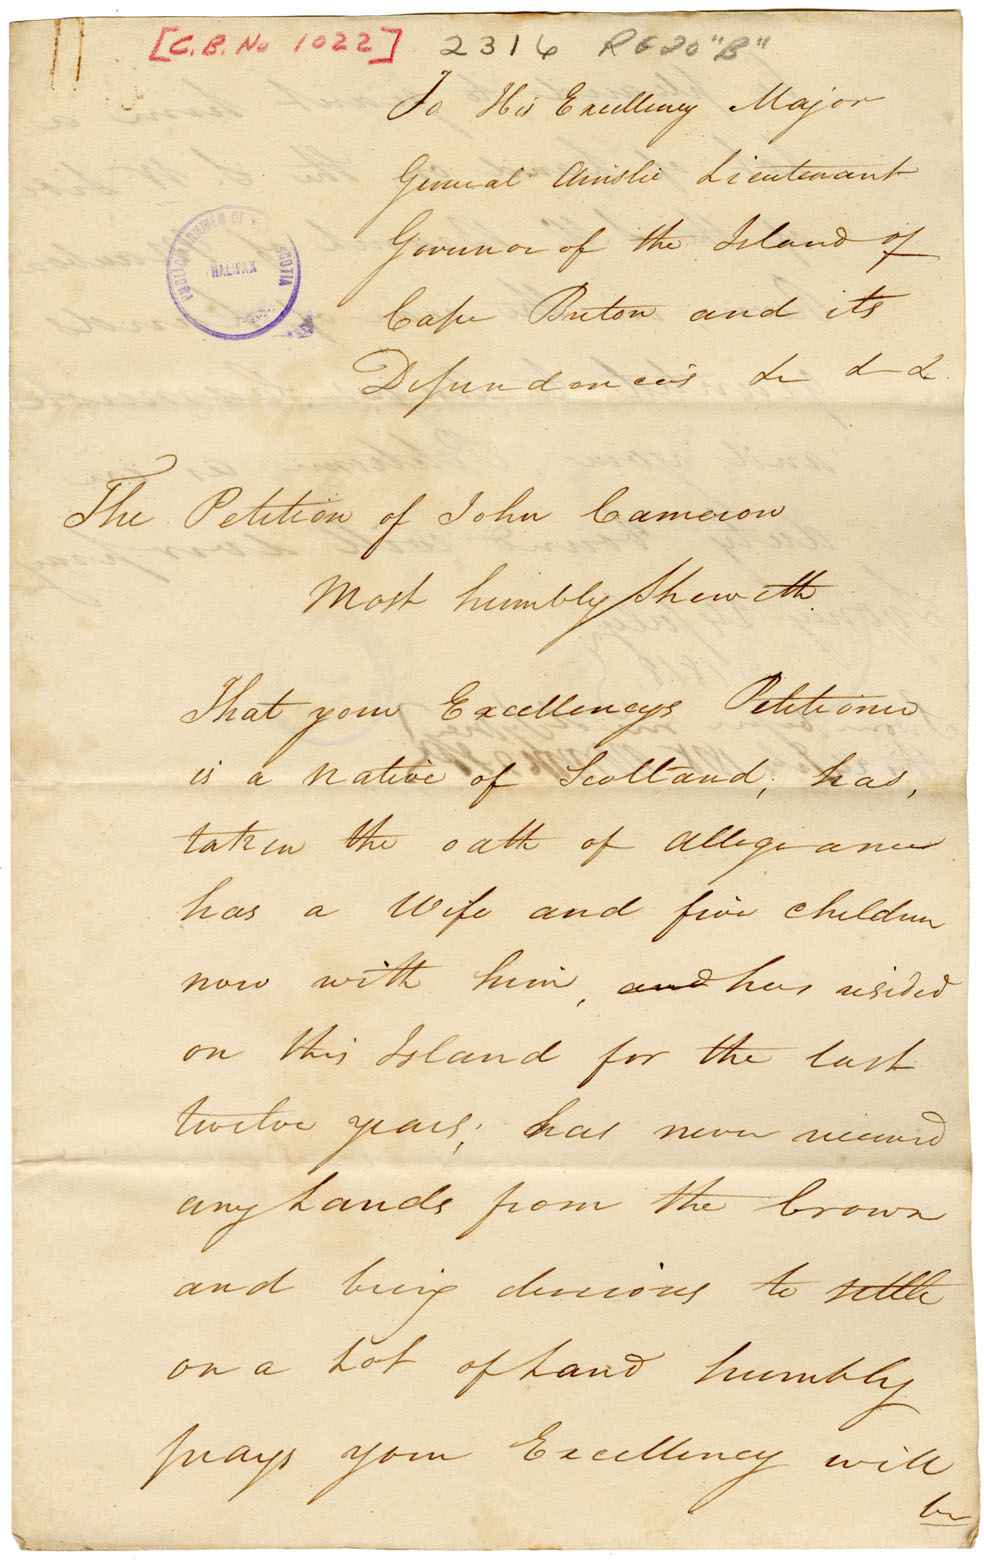 [C.B. No 1022] 2316 RG 20 "B"
To His Excellency Major
General Ainslie Lieutenant
Governor of the Island of
Cape Breton and its
Dependencies &c &c &c
PUBLIC ARCHIVES OF NOVA SCOTIA
HALIFAX
The Petition of John Cameron
Most humbly Sheweth
That your Excellencys Petitioner
is a native of Scotland, has,
taken the oath of allegiance
has a Wife and five children
now with him, and has resided
on this Island for the last
twelve years; has never received
any Lands from the Crown
and being desirous to settle
on a Lot of Land humbly
prays your Excellency will
be